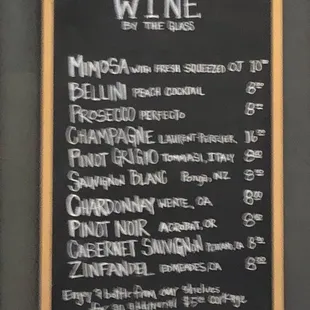 WINE
BY THE GLASS
MIMOSA WITH FRESH SQUEEZED OJ 10.00
BELLINI PEACH COCKTAIL 8.00
PROSECCO PERFECTO 8.00
CHAMPAGNE LAURENT-PERRIER 16.00
PINOT GRIGIO TOMMASI, ITALY 8.00
SAUVIGNON BLANC NZ 9.00
CHARDONNAY WENTE, CA 8.00
PINOT NOIR ACROBAT, OR 9.00
CABERNET SAUVIGNON CA 8.00
ZINFANDEL EDMEADES, CA 8.00
Enjoy a bottle from our shelves
for an additional $5.00 corkage